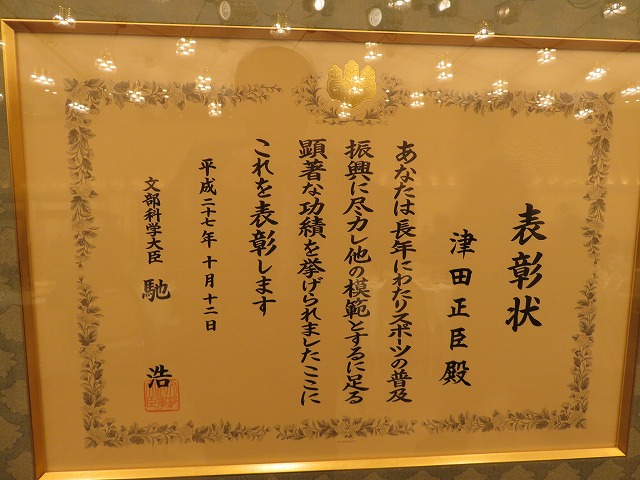 表彰状
津田正臣殿
あなたは長年にわたりスポーツの普及
振興に尽力し他の模範とするに足る
顕著な功績を挙げられましたここに
これを表彰します
平成二十七年十月十二日
文部科学大臣 馳 浩